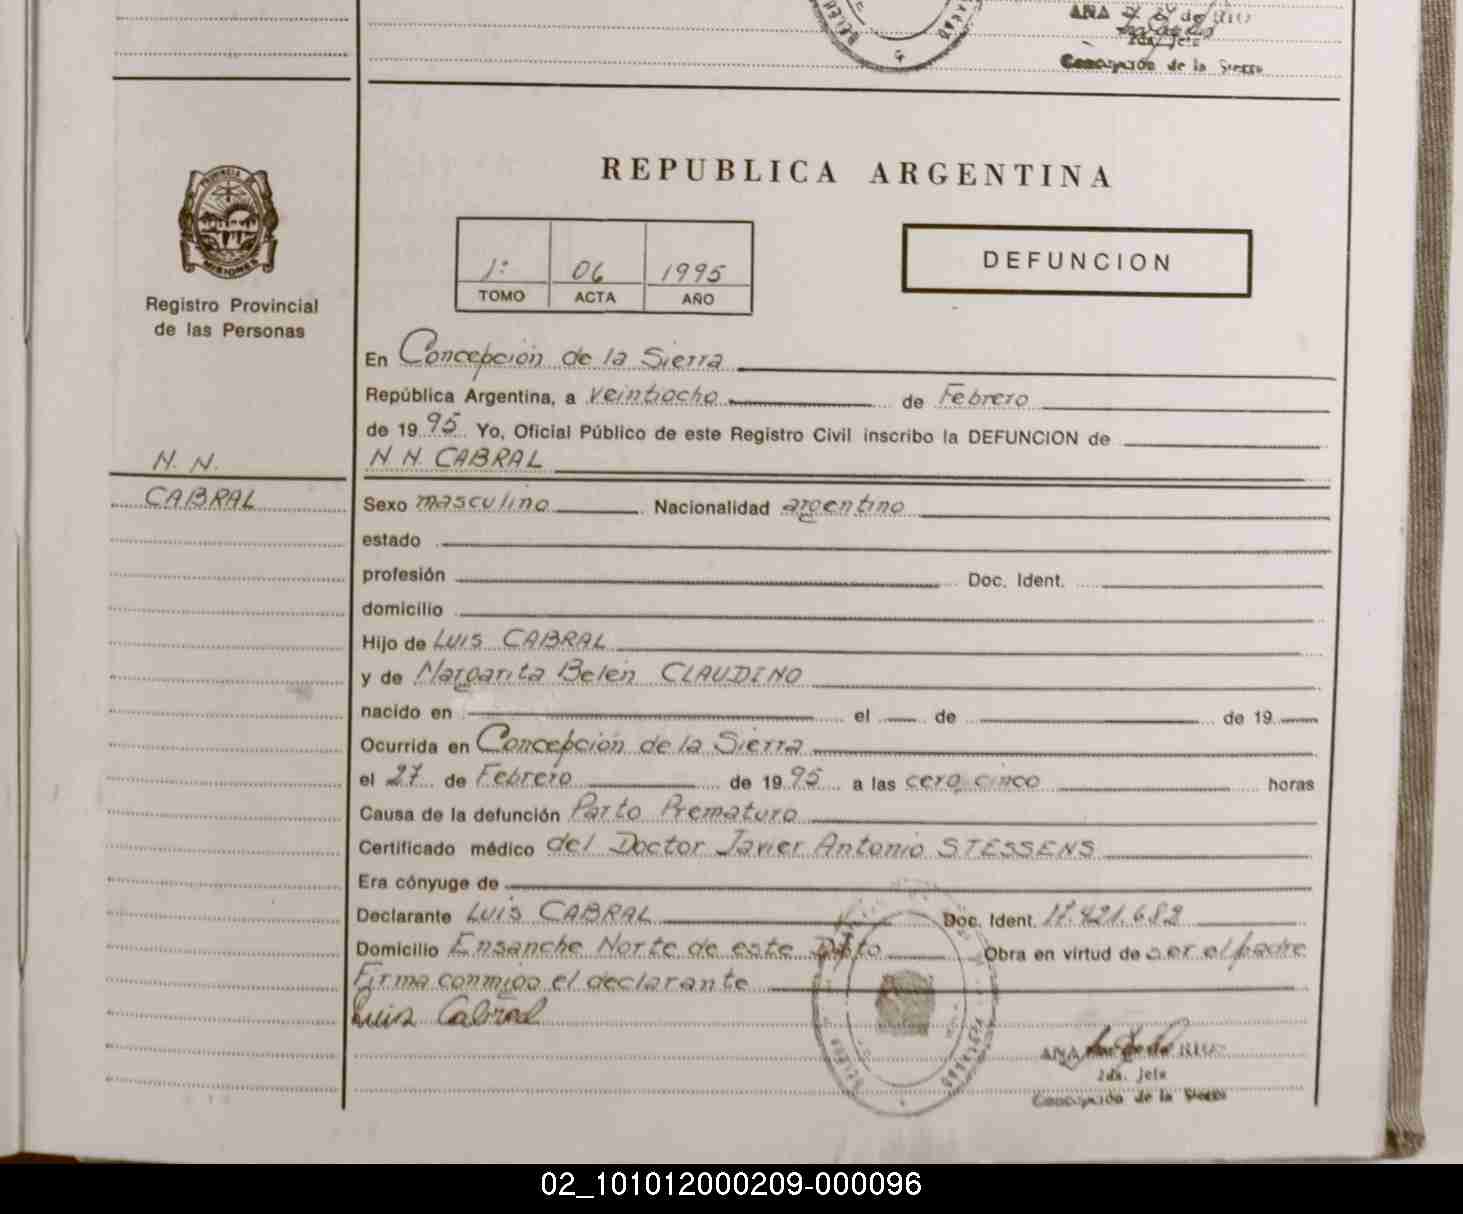 ANA
de RIO
2da. Jefe
Concepción de la Sierra
REPUBLICA ARGENTINA
PROVINCIA DE
MISIONES
1: 06 1995
TOMO ACTA AÑO
DEFUNCION
Registro Provincial
de las Personas
En Concepción de la Sierra
República Argentina, a veintiocho de Febrero
de 1995 Yo, Oficial Público de este Registro Civil inscribo la DEFUNCION de
N. N.
N N CABRAL
CABRAL
Sexo masculino Nacionalidad argentino
estado
profesión Doc. Ident.
domicilio
Hijo de LUIS CABRAL
y de Margarita Belén CLAUDINO
nacido en el de de 19
Ocurrida en Concepción de la Sierra
el 27 de Febrero de 1995 a las cero cinco horas
Causa de la defunción Parto Prematuro
Certificado médico del Doctor Javier Antonio STESSENS
Era cónyuge de
Declarante LUIS CABRAL Doc. Ident. 17.421.682
Domicilio Ensanche Norte de este Dpto Obra en virtud de ser el padre
Firma conmigo el declarante
Luis Cabral
ANA RIO
2da. Jefe
Concepción de la Sierra
02_101012000209-000096